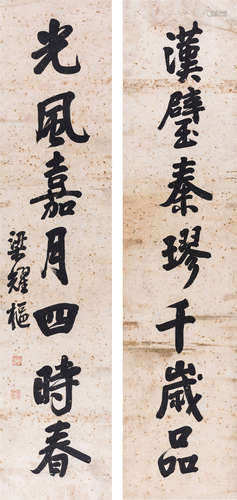 漢璧秦璆千歲品
光風嘉月四時春
梁耀樞